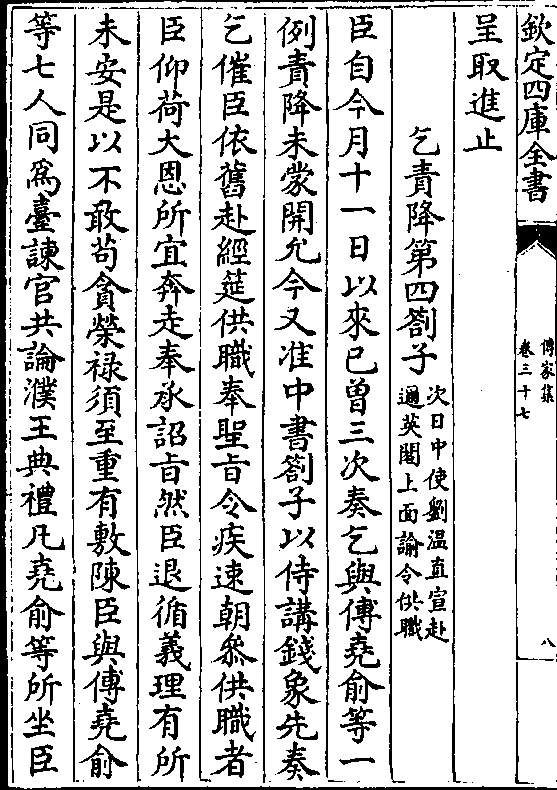 欽定四庫全書
傳家集
卷三十七
八
呈取進止
乞責降第四劄子
次日中使劉温直宣赴
邇英閣上面諭令供職
臣自今月十一日以來已曾三次奏乞與傅堯俞等一
例責降未蒙開允今又准中書劄子以侍講錢象先奏
乞催臣依舊赴經筵供職奉聖旨令疾速朝叅供職者
臣仰荷大恩所宜奔走奉承詔旨然臣退循義理有所
未安是以不敢苟貪榮禄須至重有敷陳臣與傅堯俞
等七人同爲臺諫官共論濮王典禮凡堯俞等所坐臣